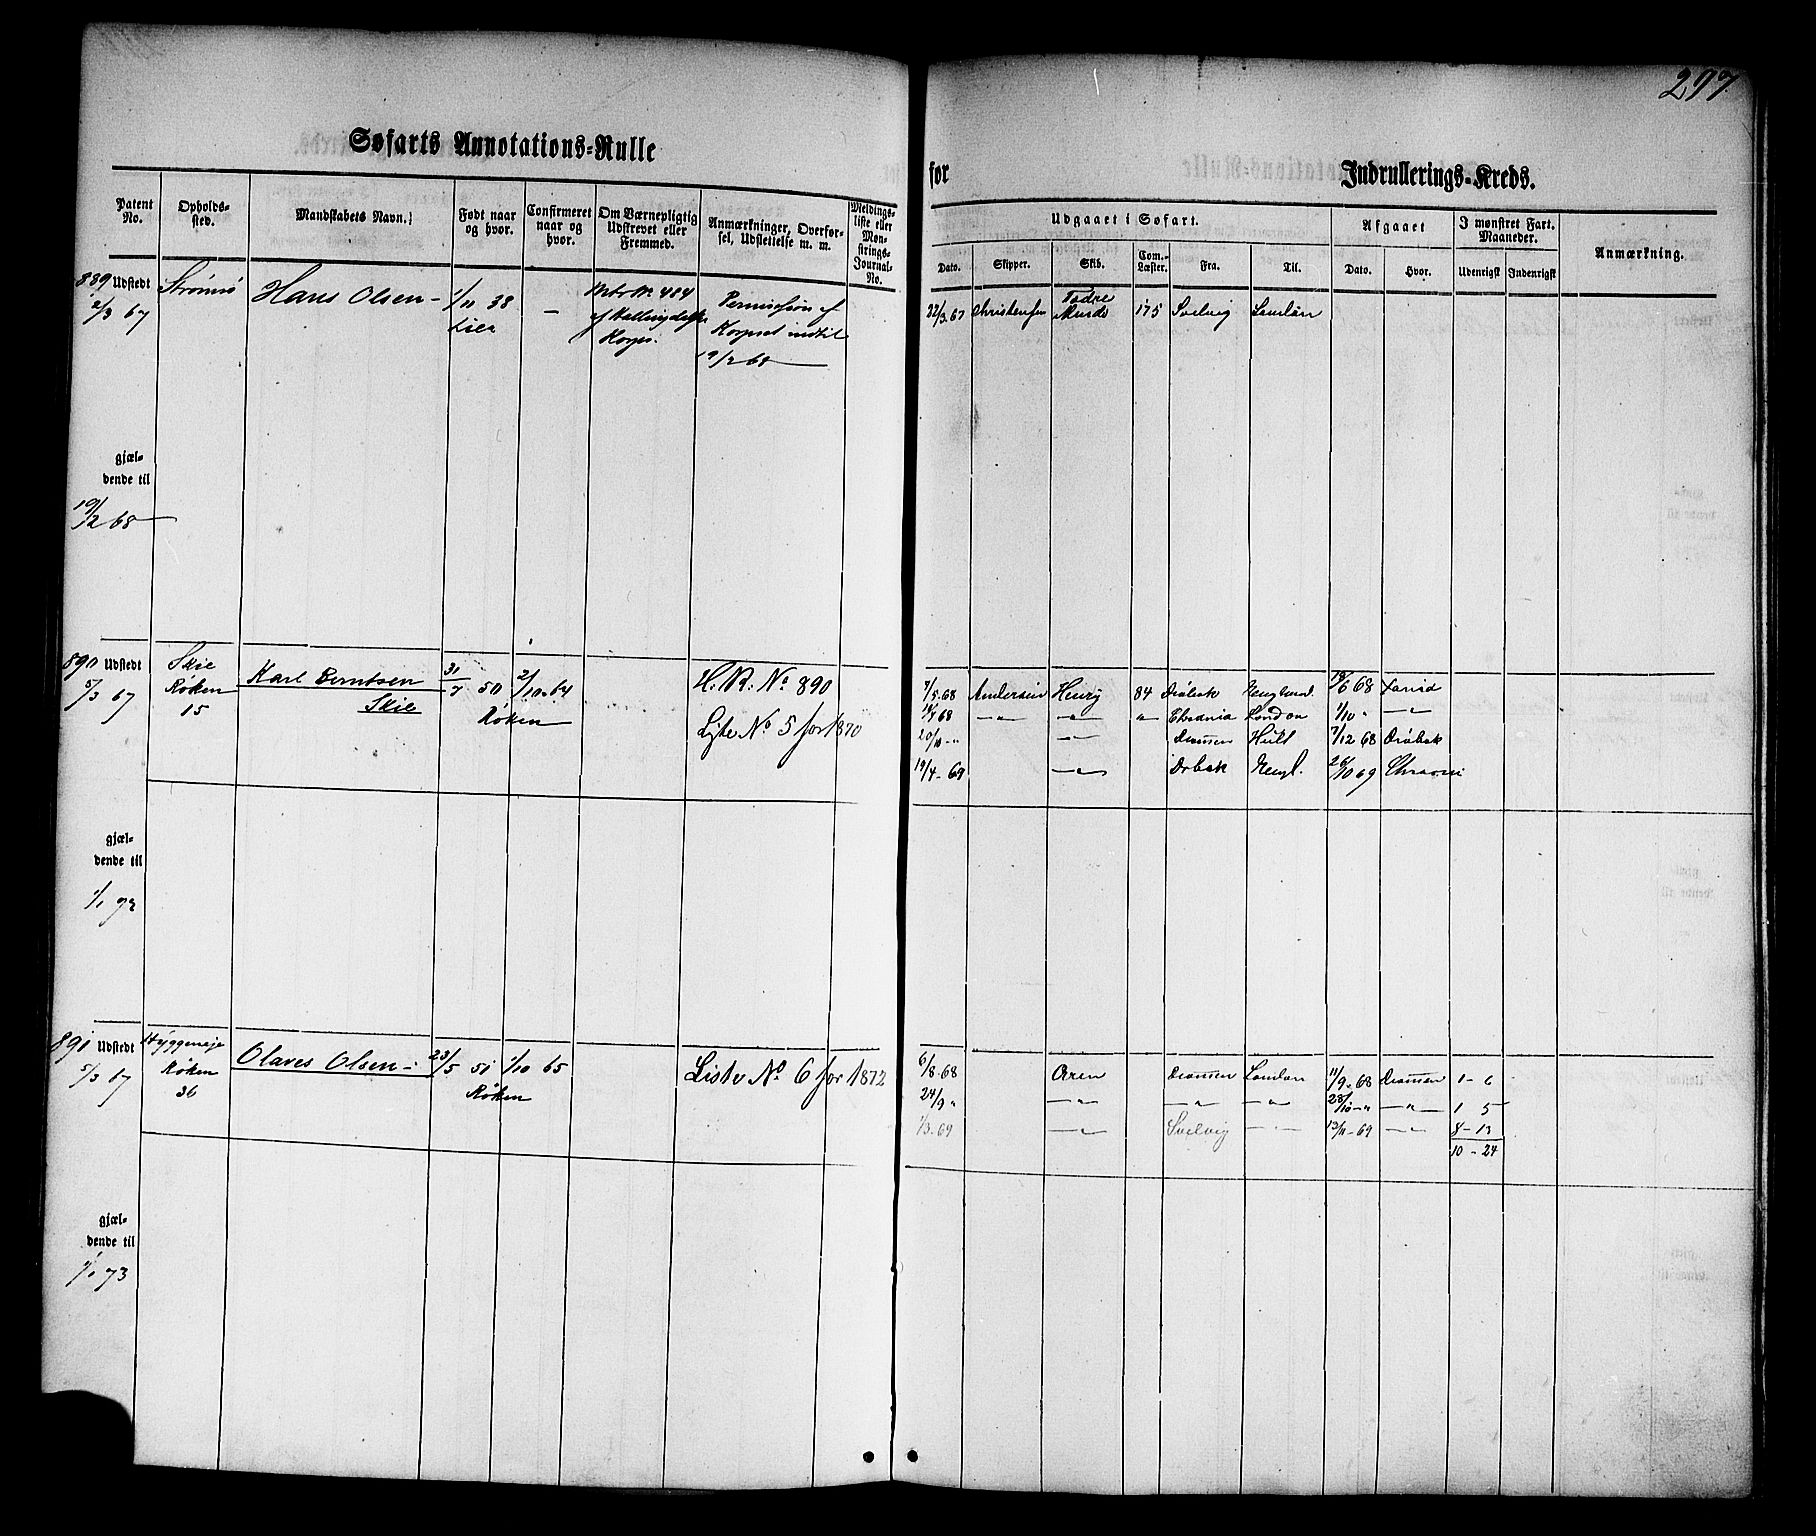 297
Søfarts Annotations-Rulle
for
Indrullerings-Kreds.
Patent No.
Opholds-sted.
Mandskabets Navn.
Født naar og hvor.
Confirmeret naar og hvor.
Om Værnepligtig Udskrevet eller Fremmed.
Anmærkninger, Overfør-sel, Udslettelse m. m.
Meldings-liste eller Møn-strings-Journal-No.
Udgaaet i Søfart.
Afgaaet
I mønstret Fart. Maaneder.
Anmærkning.
Dato.
Skipper.
Skib.
Com.-Læster.
Fra.
Til.
Dato.
Hvor.
Udenrigsk
Indenrigsk
889 Udstedt
2/3 67
Strømsø
Hans Olsen -
1/11 38
Lier
—
No. 484
Korps.
Permission af
Korpset indtil
19/2 68
22/3.67
Christensen
175
Svelvig
London
gjæl-
dende til
19/2 68
890 Udstedt
5/3 67
Skie
Røken
15
Karl Berntsen
Skie
31/7 50
Røken
2/10-64
H. R. No 890
Liste No 5 for 1870
7/5.68
Andersen
Henry
84
Drøbak
Engeland.
18/6 68
—"—
—"—
"
London
1/10 "
—"—
20/10 -"
—"—
Drammen
Hull
7/12 68
Drøbak
19/4-69
—"—
Drbak
Engl.
26/10 69
gjæl-
dende til
1/1 72
891 Udstedt
5/3 67
Hyggeneje
Røken
36
Olaves Olsen -
23/5 51
Røken
1/10 65
Liste No 6 for 1872
6/8-68
Oren
Drammen
London
11/9-68
Drammen
1 - 6
24/9 "
—"—
—"—
—"—
28/10-"
—"—
1 5
1/3-69
—"—
Svelvig
—"—
13/11-69
—"—
8 - 13
10 - 24
gjæl-
dende til
1/1 73